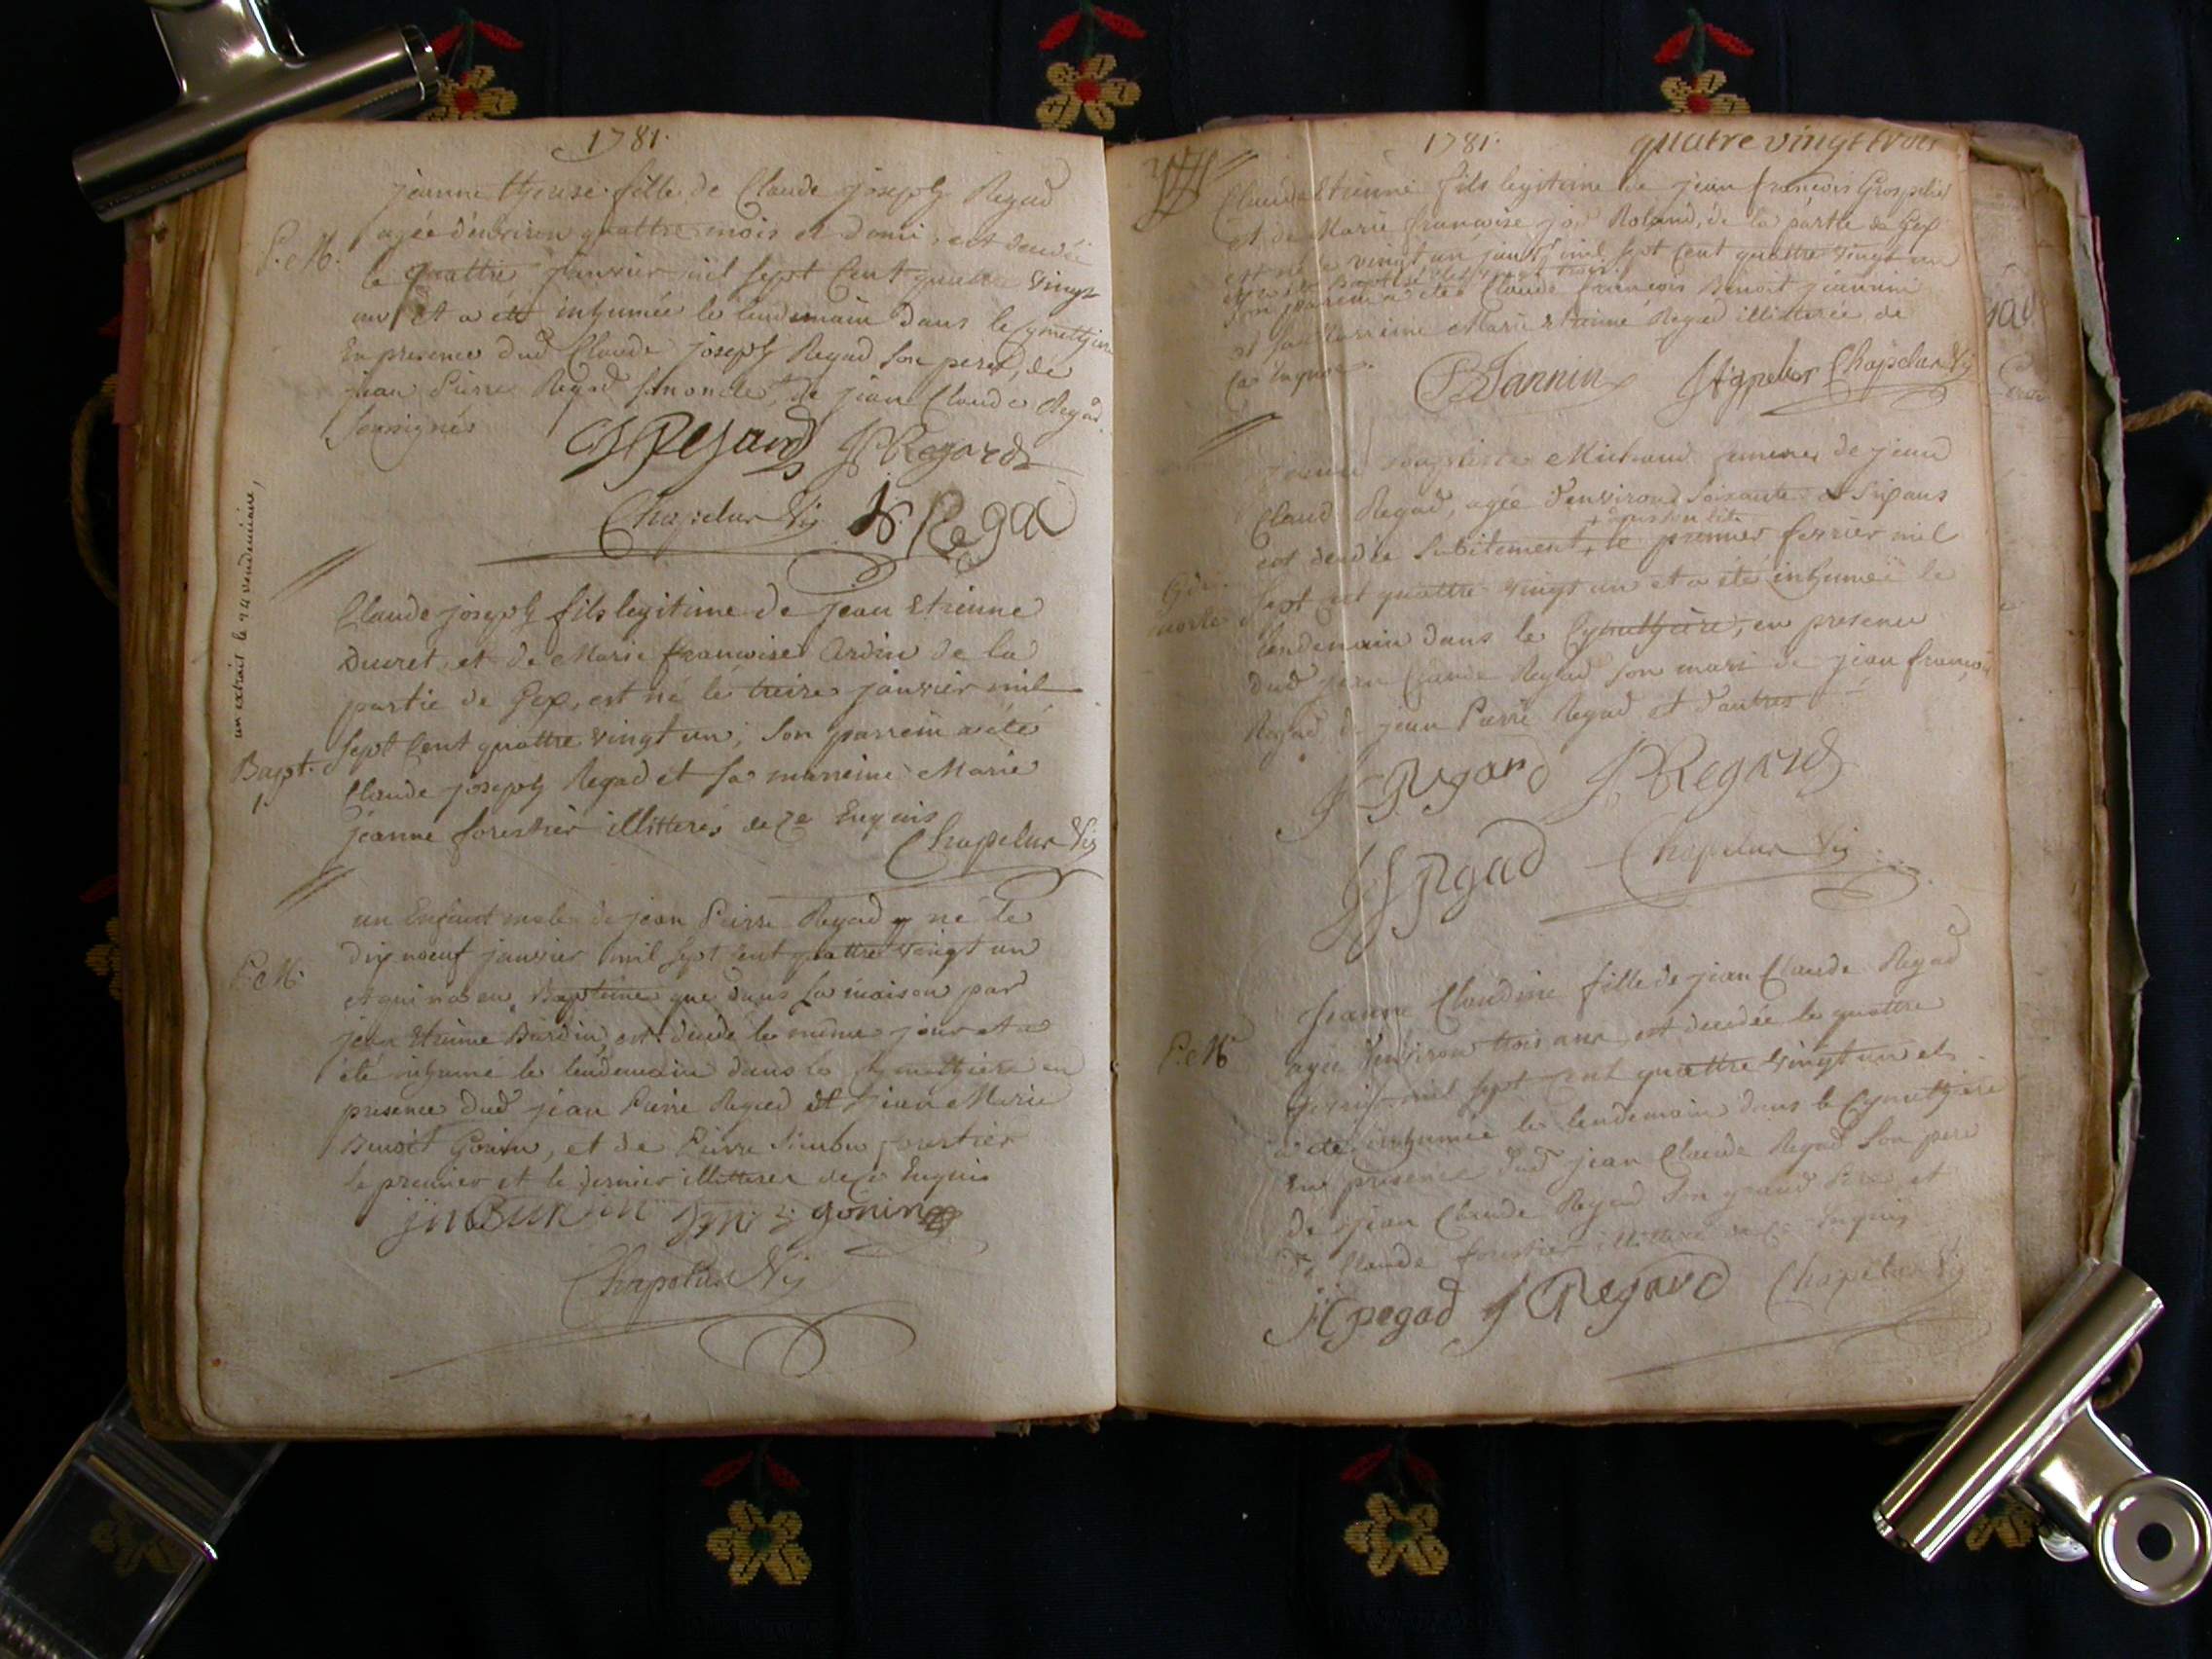 1781.
jeanne therese fille de Claude joseph Regad
P. M.
agée d'environ quattre mois et demi, est decedée
le quattre janvier mil sept Cent quattre vingt
un, et a été inhumée le lendemain dans le Cymettiere
En presence dud Claude joseph Regad son pere, de
jean Pierre Regad son oncle, de jean Claude Regad
soussignés
CJRegard JPRegard
Chapelur Vic Regad
un extrait le 24 vendemiaire,
Claude joseph fils legitime de jean Etienne
Ducret, et de Marie francoise Ardin de la
partie de Gex, est né le treize janvier mil
sept Cent quattre vingt un; son parrein a été
Bapt.
Claude joseph Regad et sa marreine Marie
jeanne forestier illitterés de ce Enquis
Chapelur Vic
un Enfant male de jean Pierre Regad né le
dix noeuf janvier mil sept Cent quattre vingt un
P. M.
et qui n'a eu Baptême que dans la maison par
jean Etienne Burdin, est decedé le même jour et a
été inhumé le lendemain dans le Cymettiere en
presence dud jean Pierre Regad et jean Marie
Benoit Gonin, et de Pierre Simon forestier
le premier et le dernier illitterés de ce Enquis
gonin
Chapelur Vic
1781.
quatre vingt trois
Claude Etienne fils legitime de jean francois Grospelier
et de Marie francoise jos. Roland, de la partie de Gex
est né le vingt un janvr mil sept Cent quattre vingt un
et a été Baptisé le vingt trois.
son parrein a été Claude francois Benoit jeannin
et sa Marreine Marie Etienne Regad illitterée de
Ce Enquise.
BJannin Chapelur Vic
jeanne Baptiste Michaud femme de jean
Claude Regad, agée d'environ soixante et six ans
+ dans son lit
est decedée subitement + le premier fevrier mil
Gde
morte
sept Cent quattre vingt un et a été inhumée le
lendemain dans le Cymettiere, en presence
dud jean Claude Regad son mari de jean francois
Regad, de jean Pierre Regad et d'autres
Regard JPRegard
Regad Chapelur Vic
Jeanne Claudine fille de jean Claude Regad
P. M.
agée d'environ trois ans est decedée le quattre
mil sept Cent quattre vingt un et
a été inhumée le lendemain dans le Cymettiere
En presence dud jean Claude Regad son pere
de jean Claude Regad son grand Pere, et
de Claude forestier illitteré de Ce Enquis
Regad Regard Chapelur Vic